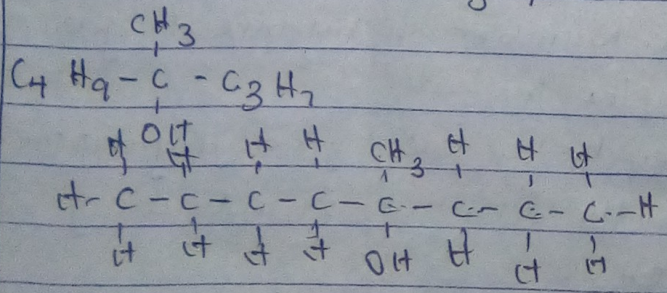 CH3
C4 H9 - C - C3 H7
OH
H H H H CH3 H H H
H - C - C - C - C - C - C - C - C - H
H H H H OH H H H